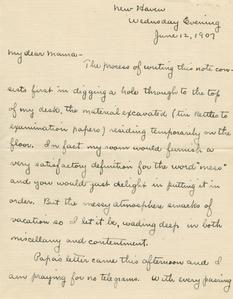 New Haven
Wednesday Evening
June 12, 1907
My dear Mama—
The process of writing this note con-
sists first in digging a hole through to the top
of my desk, the material excavated (tin kettles to
examination papers) residing temporarily on the
floor. In fact my room would furnish a
very satisfactory definition for the word "mess"
and you would just delight in putting it in
order. But the messy atmosphere smacks of
vacation so I let it be, wading deep in both
miscellany and contentment.
Papa's letter came this afternoon and I
am praying for no telegrams. With every passing